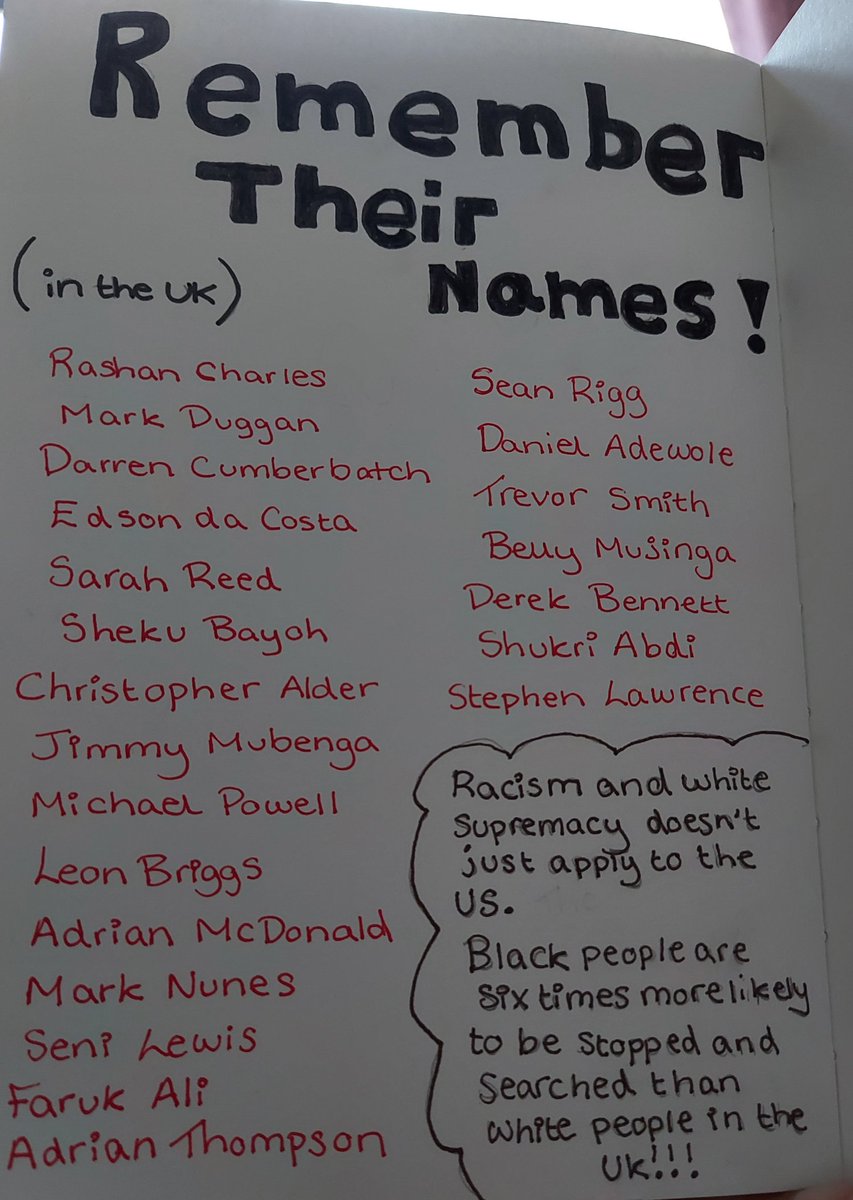 Remember
Their
Names!
(in the UK)
Rashan Charles
Mark Duggan
Darren Cumberbatch
Edson da Costa
Sarah Reed
Sheku Bayoh
Christopher Alder
Jimmy Mubenga
Michael Powell
Leon Briggs
Adrian McDonald
Mark Nunes
Seni Lewis
Faruk Ali
Adrian Thompson
Sean Rigg
Daniel Adewole
Trevor Smith
Belly Mujinga
Derek Bennett
Shukri Abdi
Stephen Lawrence
Racism and white
supremacy doesn't
just apply to the
US.
Black people are
six times more likely
to be stopped and
searched than
white people in the
UK!!!